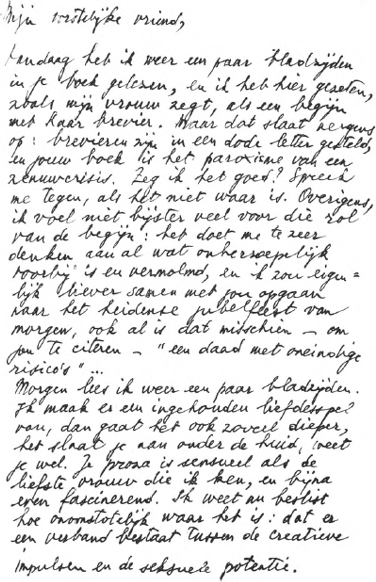 Mijn vorstelijke vriend,
Vandaag heb ik weer een paar bladzijden
in je boek gelezen, en ik heb hier gezeten,
zoals mijn vrouw zegt, als een begijn
met haar brevier. Maar dat slaat nergens
op: brevieren zijn in een dode letter gesteld,
en jouw boek is het paroxisme van een
zenuwcrisis. Zeg ik het goed? Spreek
me tegen, als het niet waar is. Overigens,
ik voel niet bijster veel voor die rol
van de begijn: het doet me te zeer
denken aan al wat onherroepelijk
voorbij is en vermolmd, en ik zou eigen=
lijk liever samen met jou opgaan
naar het heidense jubelfeest van
morgen, ook al is dat misschien – om
jou te citeren – "een daad met oneindige
risico's"...
Morgen lees ik weer een paar bladzijden.
Ik maak er een ingehouden liefdesspel
van, dan gaat het ook zoveel dieper,
het slaat je aan onder de huid, weet
je wel. Je proza is sensueel als de
liefste vrouw die ik ken, en bijna
even fascinerend. Ik weet nu beslist
hoe onomstotelijk waar het is: dat er
een verband bestaat tussen de creatieve
impulsen en de seksuele potentie.